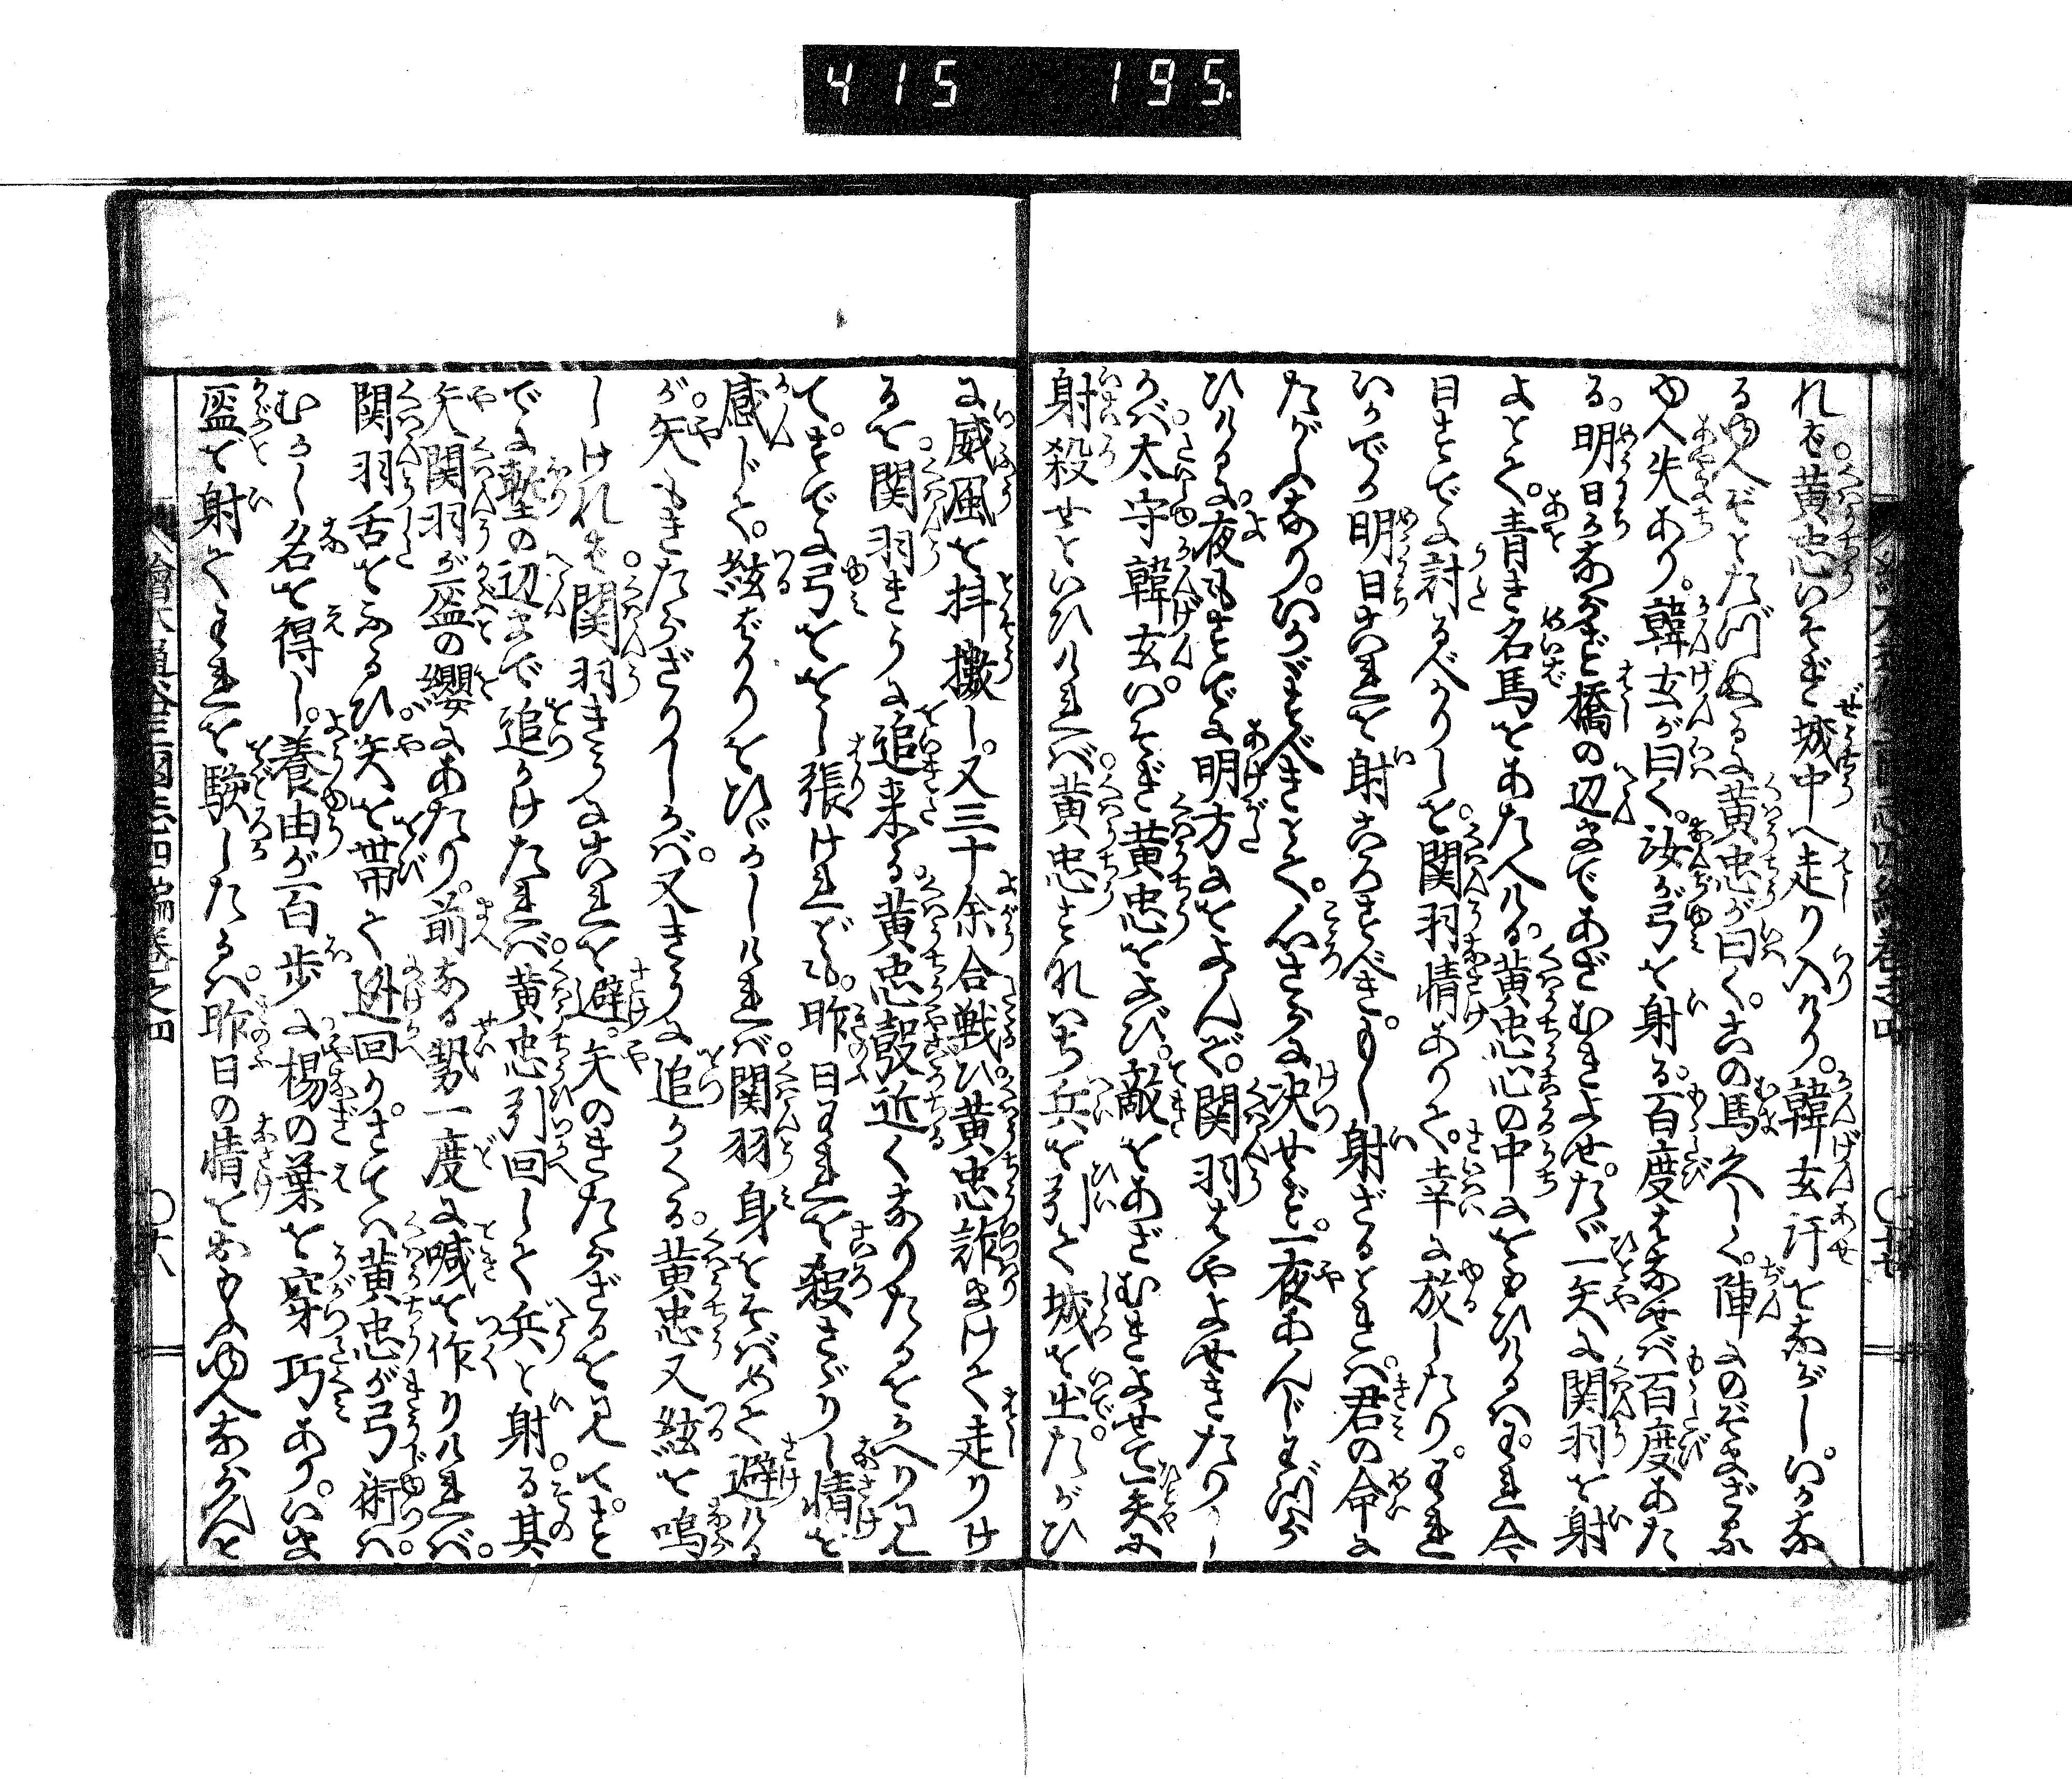 415 195.
れば黄忠いそぎ城中へ走り入けり。韓玄汗をながし。いかな
るゆへぞとたづぬるに黄忠が曰く。この馬久しく。陣にのぞまざる
ゆへ失あり。韓玄が曰く。汝が弓を射る。百度はなせば百度あた
る。明日かならず橋の辺まであざむきよせ。たゞ一矢に関羽を射
よとて。青き名馬をあたへける。黄忠心の中におもひけるへ。われ今
日すでに討るべかりしを。関羽情ありて。幸に放したり。われ
いかでか明日これを射ころすべき。もし射ざるときへ。君の命に
たがふなり。いかゞすべきとて。心さらに決せず。一夜あんじわづら
ひけるに。夜もすでに明方にをよんで。関羽はやよせきたりし
かべ。太守韓玄。いそぎ黄忠をよび。敵をあざむきよせて一矢に
射殺せといひければ。黄忠すなはち兵を引て城を出。たがひ
に威風を抖擻し。又三十余合戦ひ。黄忠詐まけて走りけ
るを。関羽きうに追来る。黄忠彀近くなりたるをかへり見
て。すでに弓ををし張けれども。昨日われを殺さゞりし情を
感じて。絃ばかりをひゞかしければ。関羽身をそばめて避ける
が。矢もきたらざりしかば。又きうに追かくる。黄忠又絃を鳴
しければ。関羽きうにこれを避。矢のきたらざるを見て。す
でに塹の辺まで追かけたれば。黄忠引回して兵と射る。其
矢関羽が盔の纓にあたり。前なる勢一度に喊を作りければ。
関羽舌をふるひ。矢を帯て迯回り。さては黄忠が弓術へ。
むかし名を得し。養由が百歩に楊の葉を穿巧あり。いま
盔を射てわれを驗したるへ。昨日の情をおもふゆへならんと
繪本通俗三國志四編巻之四 〇十八